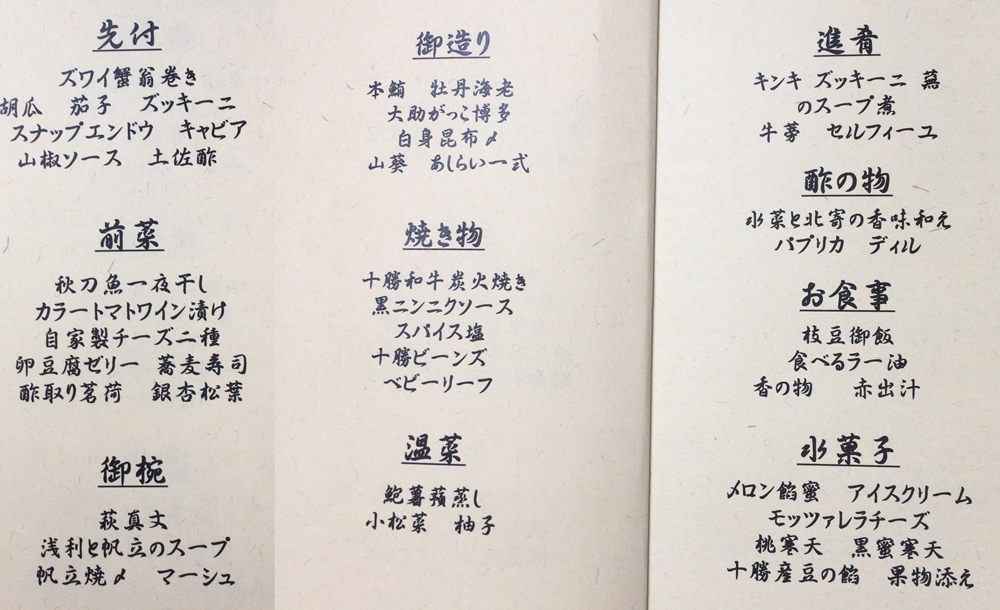 先付
ズワイ蟹翁巻き
胡瓜　茄子　ズッキーニ
スナップエンドウ　キャビア
山椒ソース　土佐酢
前菜
秋刀魚一夜干し
カラートマトワイン漬け
自家製チーズ二種
卵豆腐ゼリー　蕎麦寿司
酢取り茗荷　銀杏松葉
御椀
萩真丈
浅利と帆立のスープ
帆立焼〆　マーシュ
御造り
本鮪　牡丹海老
大助がっこ博多
白身昆布〆
山葵　あしらい一式
焼き物
十勝和牛炭火焼き
黒ニンニクソース
スパイス塩
十勝ビーンズ
ベビーリーフ
温菜
鮑薯蕷蒸し
小松菜　柚子
進肴
キンキ　ズッキーニ　蕪
のスープ煮
牛蒡　セルフィーユ
酢の物
水菜と北寄の香味和え
パプリカ　ディル
お食事
枝豆御飯
食べるラー油
香の物　赤出汁
水菓子
メロン餡蜜　アイスクリーム
モッツァレラチーズ
桃寒天　黒蜜寒天
十勝産豆の餡　果物添え